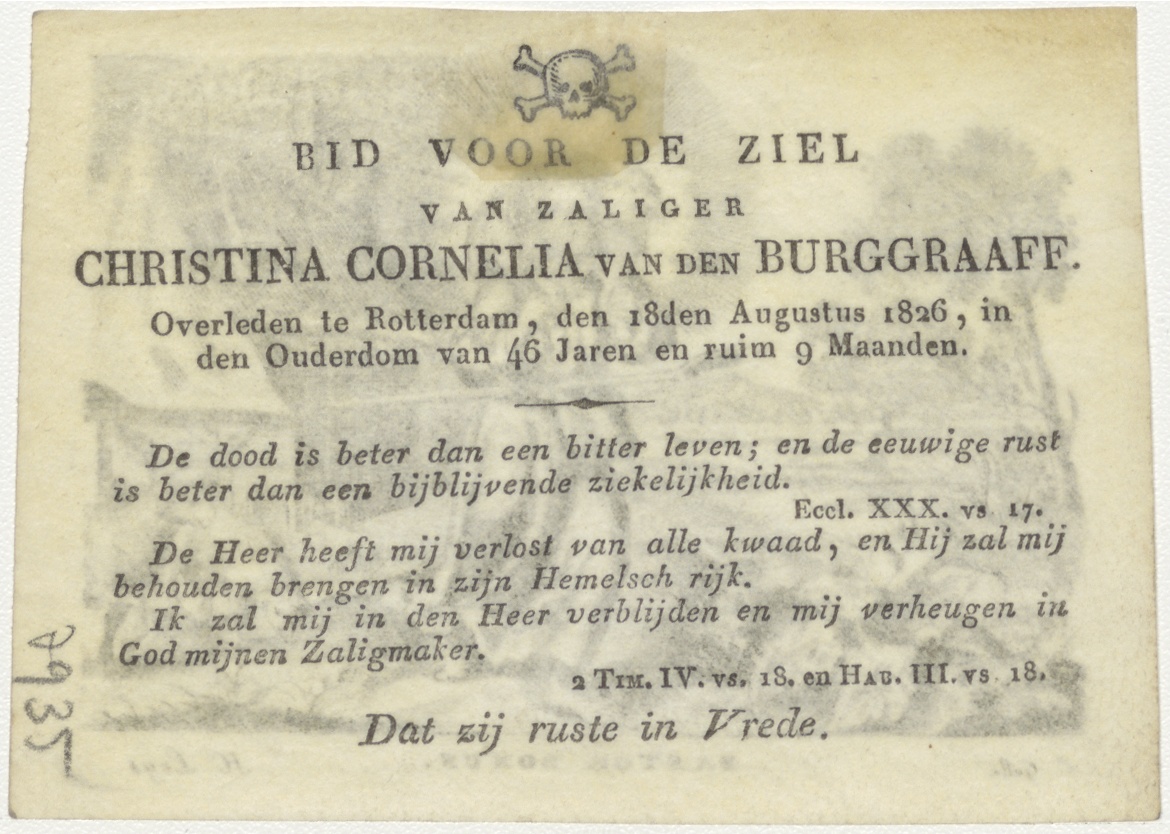 BID VOOR DE ZIEL
VAN ZALIGER
CHRISTINA CORNELIA VAN DEN BURGGRAAFF.
Overleden te Rotterdam, den 18den Augustus 1826, in
den Ouderdom van 46 Jaren en ruim 9 Maanden.
De dood is beter dan een bitter leven; en de eeuwige rust
is beter dan een bijblijvende ziekelijkheid.
Eccl. XXX. vs 17.
De Heer heeft mij verlost van alle kwaad, en Hij zal mij
behouden brengen in zijn Hemelsch rijk.
Ik zal mij in den Heer verblijden en mij verheugen in
God mijnen Zaligmaker.
2 TIM. IV. vs. 18. en HAB. III. vs 18.
Dat zij ruste in Vrede.